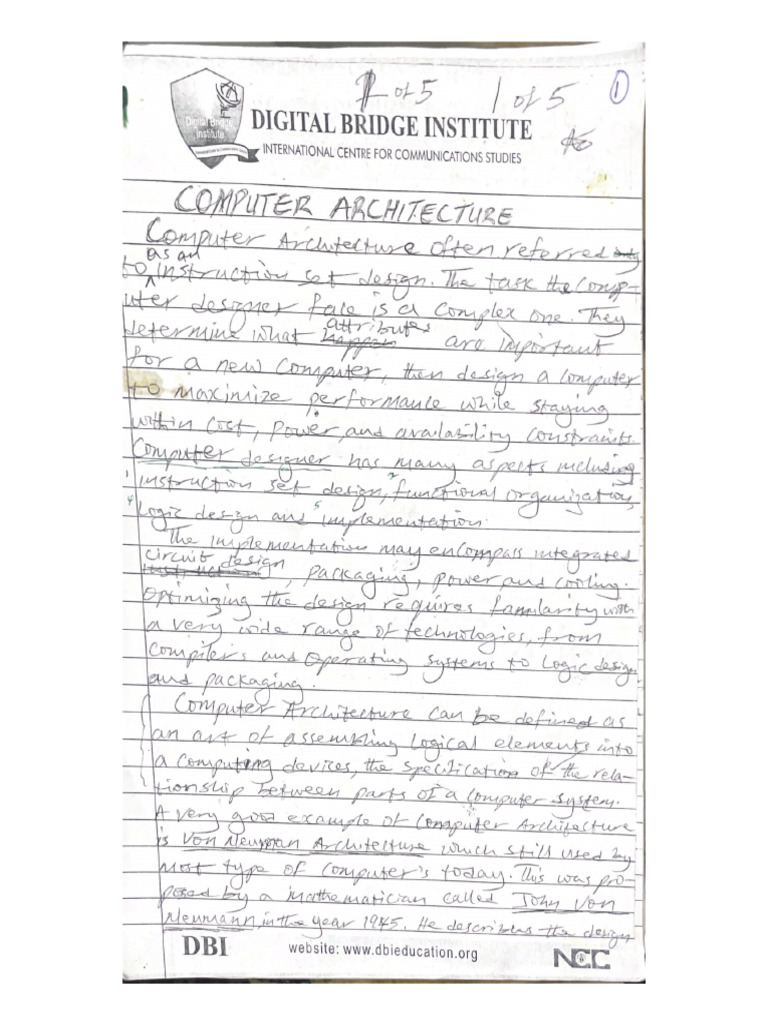 1 of 5 1 of 5 1
Digital Bridge
Institute
DIGITAL BRIDGE INSTITUTE
INTERNATIONAL CENTRE FOR COMMUNICATIONS STUDIES
COMPUTER ARCHITECTURE
Computer Architecture often referred
to as an instruction set design. The task the comp-
uter designer face is a complex one. They
determine what attributes are important
for a new computer, then design a computer
to maximize performance while staying
within cost, power, and availability constraints.
Computer designer has many aspects including
1 instruction set design, 2 functional organization,
4 Logic design and 5 implementation.
The implementation may encompass integrated
circuit design, packaging, power and cooling.
Optimizing the design requires familarity with
a very wide range of technologies, from
compiler's and operating systems to logic design
and packaging.
Computer Architecture can be defined as
an art of assembling logical elements into
a computing devices, the specification of the rela-
tionship between parts of a computer system.
A very good example of Computer Architecture
is Von Neuman Architecture which still used by
most type of computer's today. This was pro-
posed by a mathematician called John Von
Neumann, in the year 1945. He describes the design
DBI website: www.dbieducation.org NCC